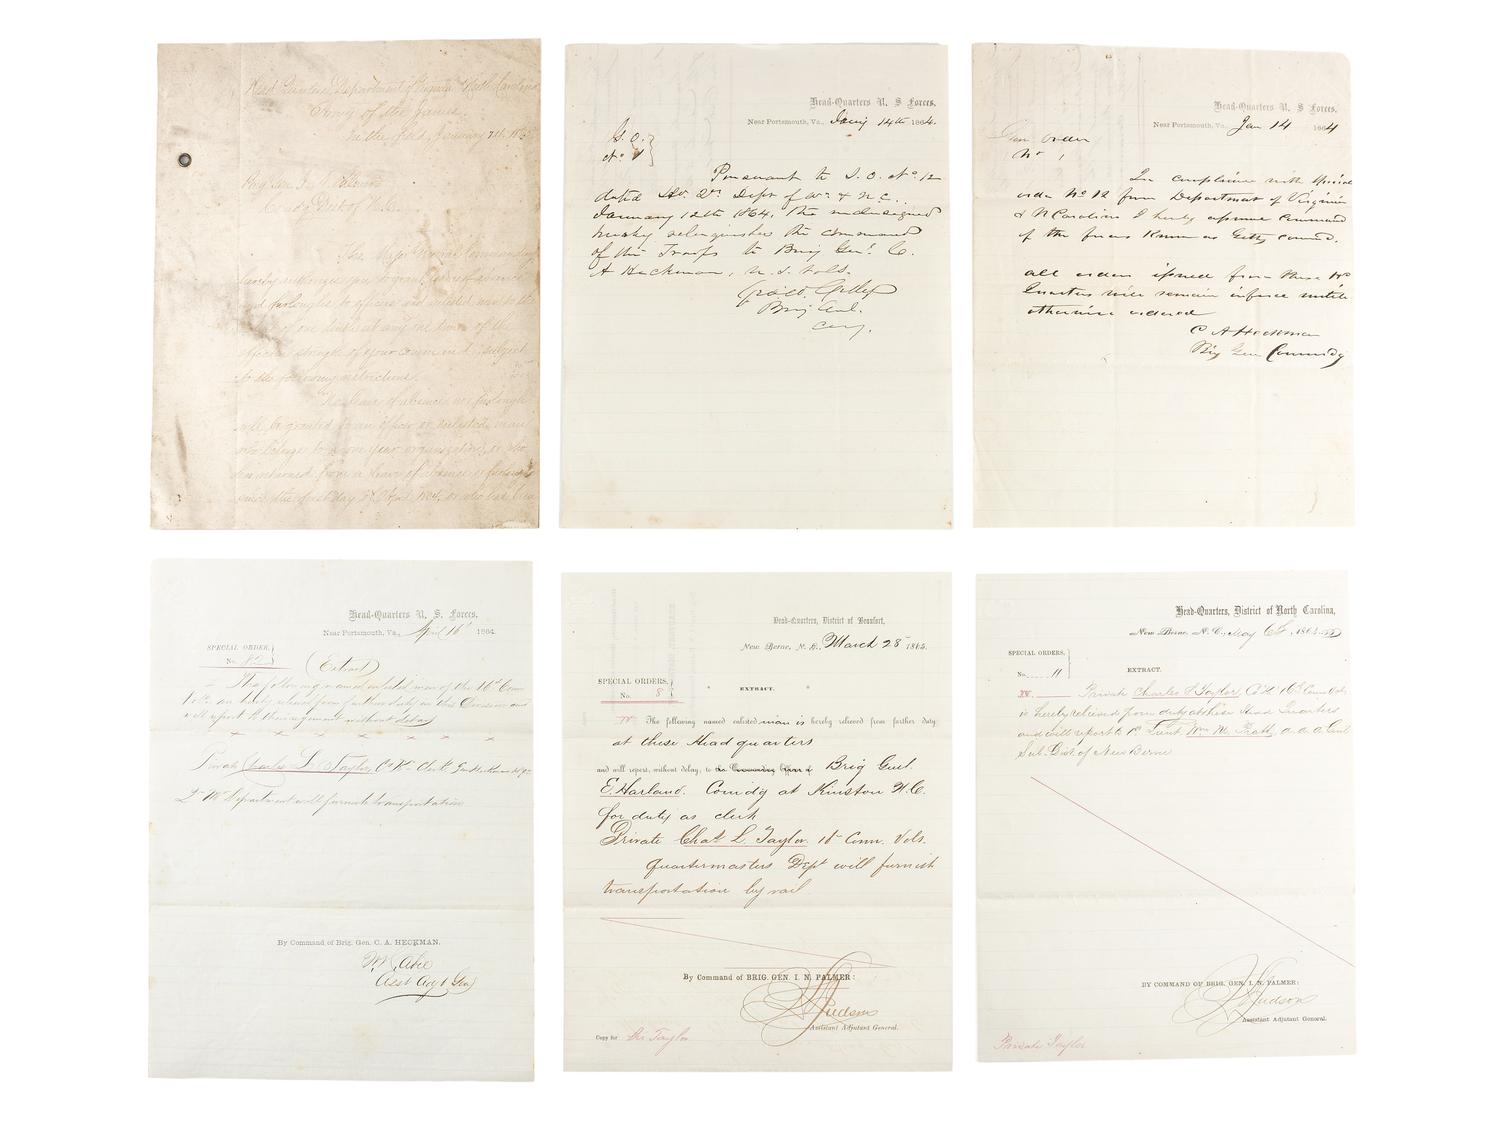 Head Quarters, Department of Virginia & North Carolina
Army of the James
In the Field, January 7th
Brig Gen
The Major General Commanding
hereby authorizes you to grant leaves of absence
and furloughs to officers and enlisted men to the
of one at any one time of the
effective strength of your command, subject
to the following restrictions.
No leave of absence or furlough
will be granted to an officer or enlisted man
who belongs to a one year organization, or who
has returned from a leave of absence or furlough
since the first day of 1864, or who has been
Head-Quarters U. S. Forces,
Near Portsmouth, Va., Jany 14th 1864.
S. O.
No 1
Pursuant to S. O. No 12
dated Hd. Qrs Dept of Va & N.C.
January 12th 1864, the undersigned
hereby relinquishes the command
of the Troops to Brig Genl C.
A Heckman, U. S. Vols.
Brig Genl.
Head-Quarters U. S. Forces,
Near Portsmouth, Va., Jan 14 1864
Gen order
No 1
In compliance with Special
order No 12 from Department of Virginia
& N Carolina I hereby assume command
of the forces known as Getty command.
all orders issued from these Hd
Quarters will remain in force until
otherwise ordered
C A Heckman
Brig Gen Commdg
Head-Quarters U. S. Forces,
Near Portsmouth, Va., April 16 1864
SPECIAL ORDER,
No.
(Extract)
The following named enlisted men of the 16th Conn
Vols. are hereby relieved from further duty in this Division and
will report to their regiment without delay
x x x x x x
Private Charles L. Taylor, Co K Clerk Gen Heckman Hd Qrs
Qr Mr Department will furnish transportation
By Command of Brig. Gen. C. A. HECKMAN.
Asst Adjt Gen
Head-Quarters, District of Beaufort,
New Berne, N. C., March 28th 1865.
SPECIAL ORDERS,
No. 8
EXTRACT.
IV The following named enlisted man is hereby relieved from further duty
at these Head quarters
and will report, without delay, to the Commanding Officer of Brig Genl.
E. Harland. Comdg at Kinston N. C.
for duty as clerk
Private Chas L. Taylor 16 Conn. Vols.
Quartermasters Dept will furnish
transportation by rail
By Command of BRIG. GEN. I. N. PALMER:
J. A. Judson
Assistant Adjutant General.
Copy for Mr Taylor
Head-Quarters, District of North Carolina,
New Berne, N. C., May 6th, 1865
SPECIAL ORDERS,
No. 11
EXTRACT.
IV. Private Charles L Taylor, Co K 16th Conn Vols
is hereby relieved from duty at these Head Quarters
and will report to 1st Lieut Wm M. Pratt, a. a. a. Genl
Sub Dist of New Berne
BY COMMAND OF BRIG. GEN. I. N. PALMER:
J. A. Judson
Assistant Adjutant General.
Private Taylor